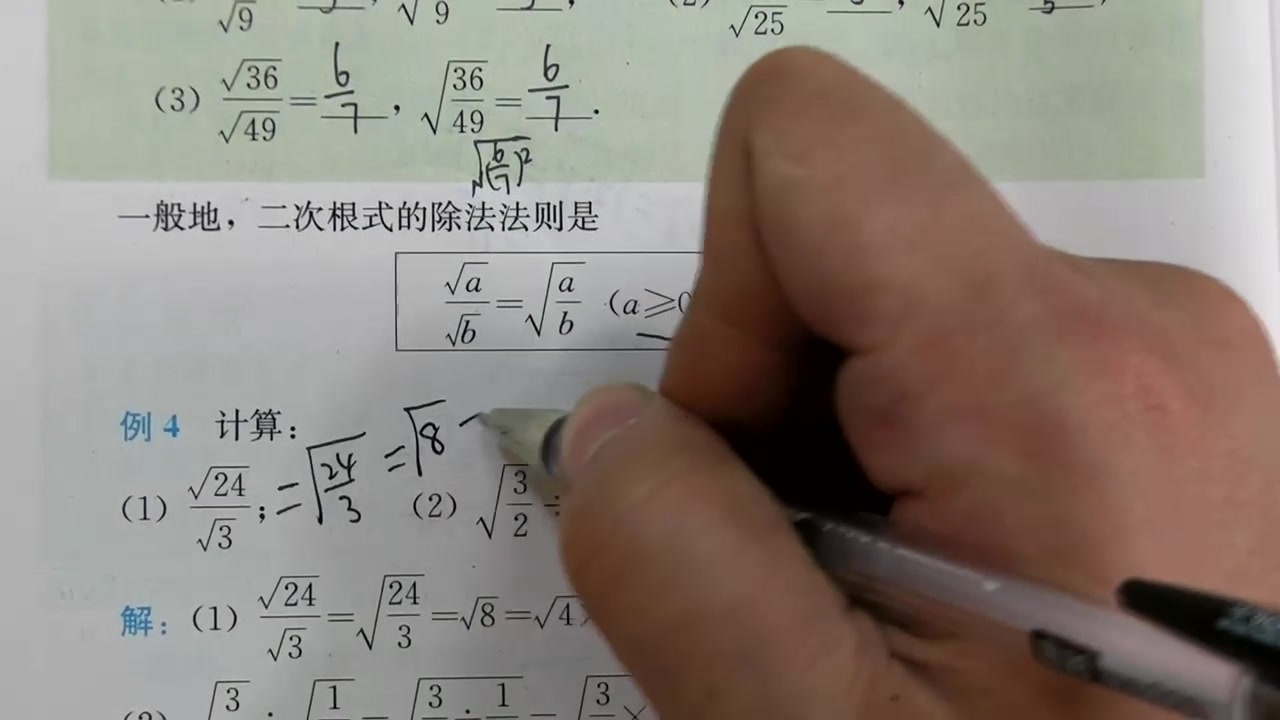 √9 √9 √25 √25 5
(3) √36/√49 = 6/7, √(36/49) = 6/7.
√(6/7)²
一般地，二次根式的除法法则是
√a/√b = √(a/b) (a≥0
例 4 计算:
(1) √24/√3; = √(24/3) = √8 (2) √(3/2) ÷
解: (1) √24/√3 = √(24/3) = √8 = √4×